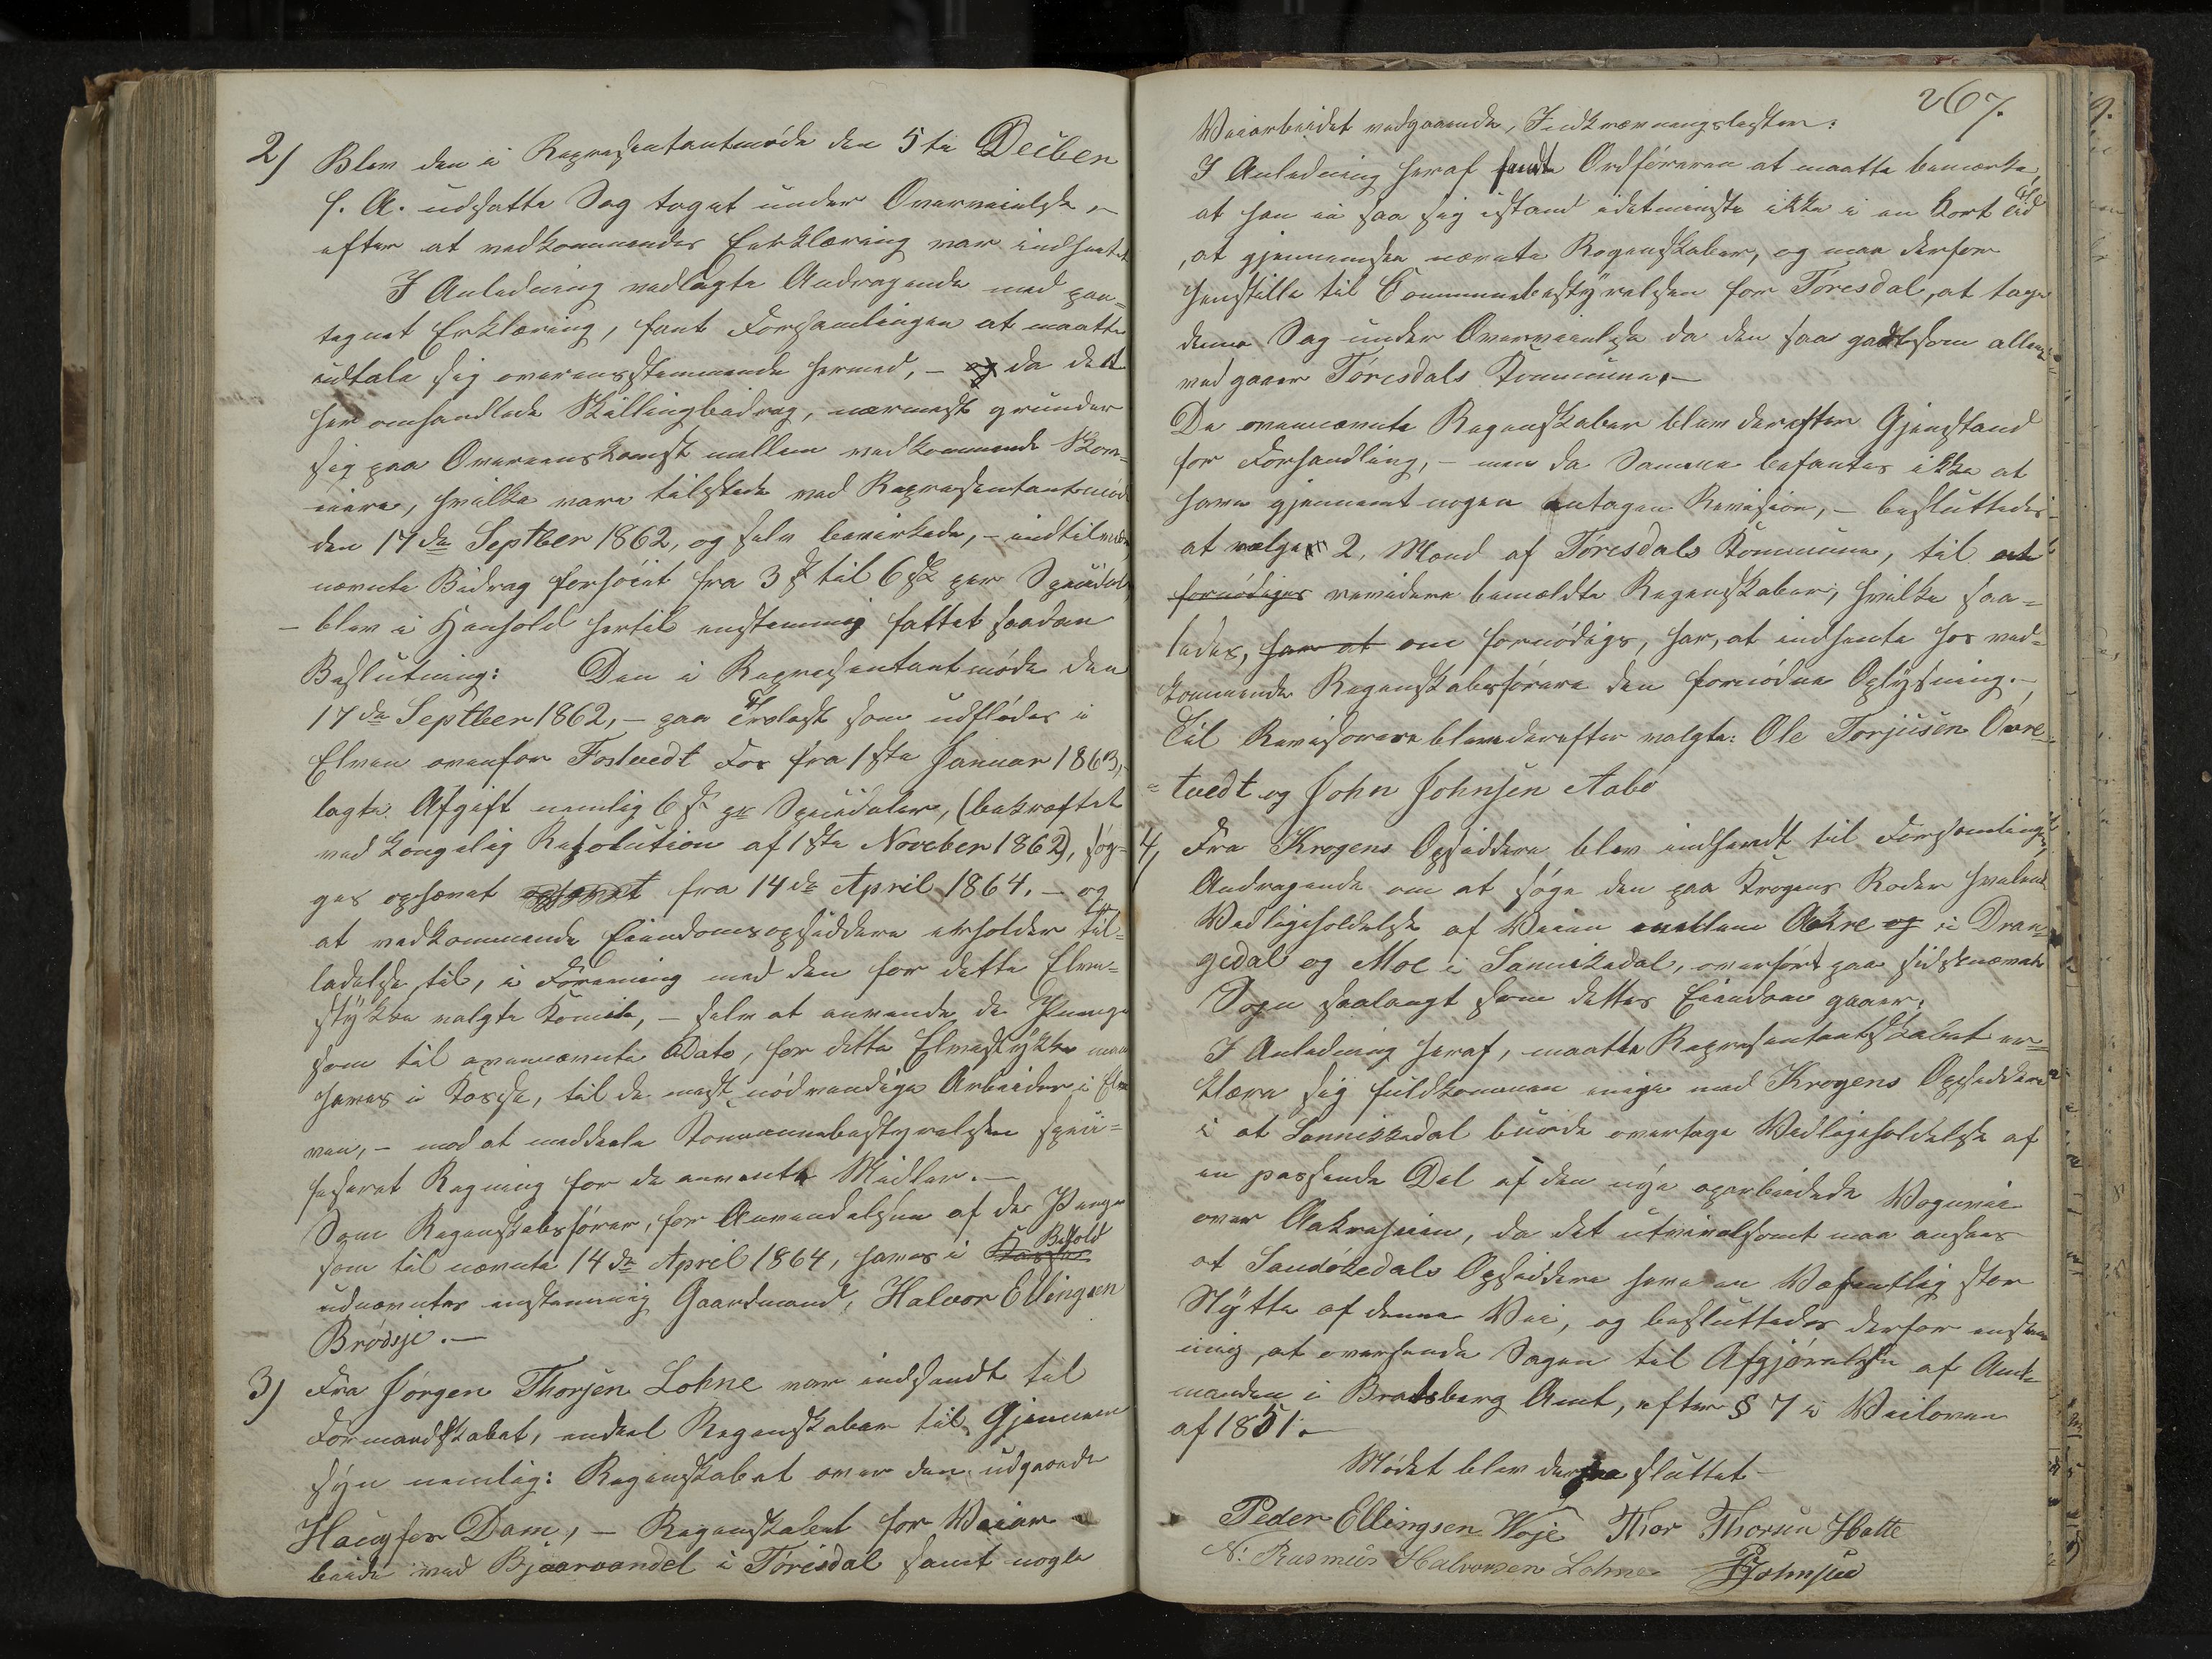 2) Blev den i Repræsentantmøde den 5te Decber
f. A. udsatte Sag taget under Overveielse,
efter at vedkommendes Erklæring var indhentet
I Anledning vedlagte Andragende med paa-
tegnet Erklæring, fant Forsamlingen at maatte
udtale sig overensstemmende hermed, – da det
her omhandlede Skillingbidrag, nærmest grunder
sig paa Overeenskomst mellem vedkommende
, hvilke vare tilstede ved Repræsentantmøde
den 17de Septber 1862, og selv bevirkede, – indtil
nævnte Bidrag forhøiet fra 3 s til 6 sk per Speciedal
– blev i Henhold hertil enstemmig fattet saadan
Beslutning: Den i Repræsentantmøde den
17de Septber 1862, – paa Trælast som udflødes i
Elven ovenfor Fostvedt Fos fra 1ste Januar 1863,
lagte Afgift nemlig 6 sk pr Speciedaler, (bekræftet
ved kongelig Resolution af 1ste Novcber 1862), søg-
ges ophævet fra 14de April 1864. – og
at vedkommende Eiendomsopsiddere erholder til-
ladelse til, i Forening med den for dette Elve-
stykke valgte Komite, – selv at anvende de Penge
som til ovennævnte Dato, for dette Elvestykke maa
haves i Kasse, til de mest nødvendige Arbeider i El-
ven, – mod at meddele Kommunebestyrelsen speci-
ficeret Regning for de anvente Midler. –
Som Regenskabsfører, for Anvendelsen af de Penge
som til nævnte 14de April 1864, haves i Kassen Behold
udnævntes enstemmig Gaardmand, Halvor Ellingsen
Brødsje. –
3) Fra Jørgen Thorsen Lohne var indsendt til
Formandskabet, endeel Regenskaber til Gjennem
syn nemlig: Regenskabet over den udgaaede
Haugfos Dam, – Regenskabet for Veiar
beide ved Bjaarvandet i Tørisdal samt nogle
267.
Veiarbeidet vedgaaende, Indkrævningslister:
I Anledning heraf fandt Ordføreren at maatte bemærke,
at han ei saa sig istand idetminste ikke i en kort Tid
, at gjennemse nævnte Regenskaber, og maa derfor
henstille til Communebestyrelsen for Tørisdal, at tage
denne Sag under Overveielse da den saa godtsom allene
vedgaaer Tørisdals Kommune. –
De ovennævnte Regenskaber blev derefter Gjenstand
for Forhandling, – men da Samme befantes ikke at
have gjennemt nogen antagen Revision, – besluttedes
at vælge 2. Mand af Tørisdals Kommune, til at
fornødiges revidere bemældte Regenskaber, hvilke saa-
ledes, har at om fornødiges, har, at indhente hos ved-
kommende Regenskabsførere den fornødne Oplysning. –
Til Revisorere blev derefter valgte: Ole Torjusen Øvre-
=tvedt og John Johnsen Aabø
4, Fra Krogens Opsiddere blev indsendt til Forsamlingen,
Andragende om at søge den paa Krogens Roder hvilende
Vedligeholdelse af Veien mellem Aakre og i Dran-
gedal og Moe i Sannikedal, overført paa sidstnævnte
Sogn saalangt som dettes Eiendom gaaer.
I Anledning heraf, maatte Repræsentantskabet er-
klære sig fuldkommen enige med Krogens Opsiddere
i at Sannikkedal burde overtage Vedligeholdelse af
en passende Del af den nye oparbeidede Vognvei
over Aakreheien, da det utvivelsomt maa ansees
at Sandøkedals Opsiddere have en Væsentlig stor
Nytte af denne Vei, og besluttedes derfor enstem
mig, at oversende Sagen til Afgjørelse af Amt-
manden i Bratsberg Amt, efter § 7 i Veiloven
af 1851. –
Mødet blev derpaa sluttet –
Peder Ellingsen Woje Thor Thorsen Hatte
N: Rasmus Halvorsen Lohne Johnsen